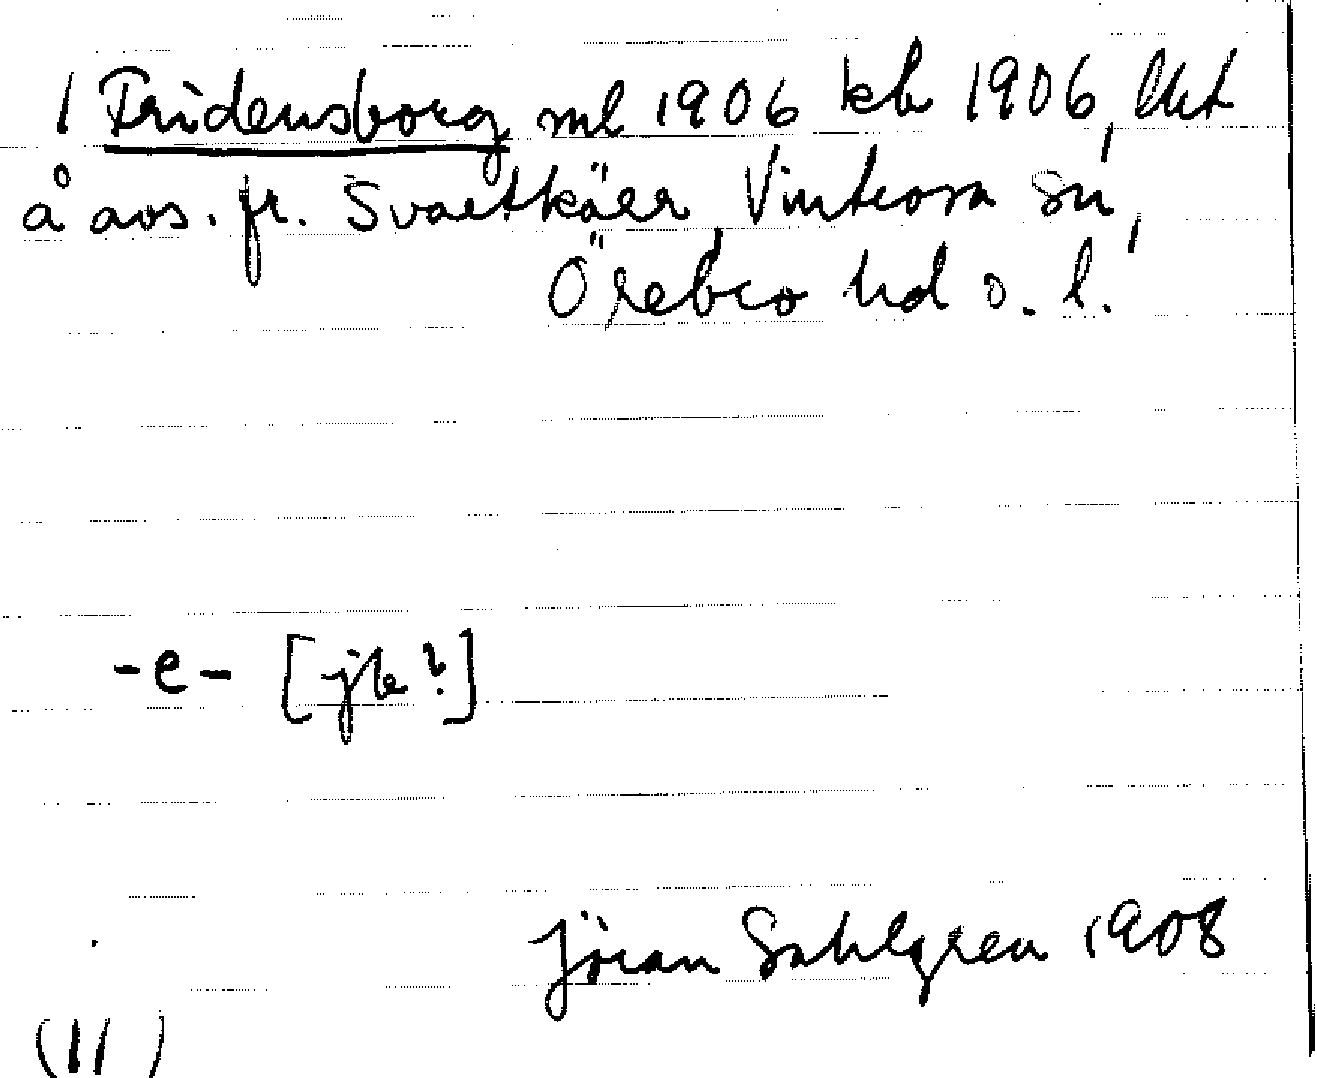 1 Fridensborg ml 1906 kb 1906, lht
å avs. fr. Svartkärr Vintrosa sn,
Örebro hd o. l.
-e- [jb?]
Jöran Sahlgren 1908
(11)